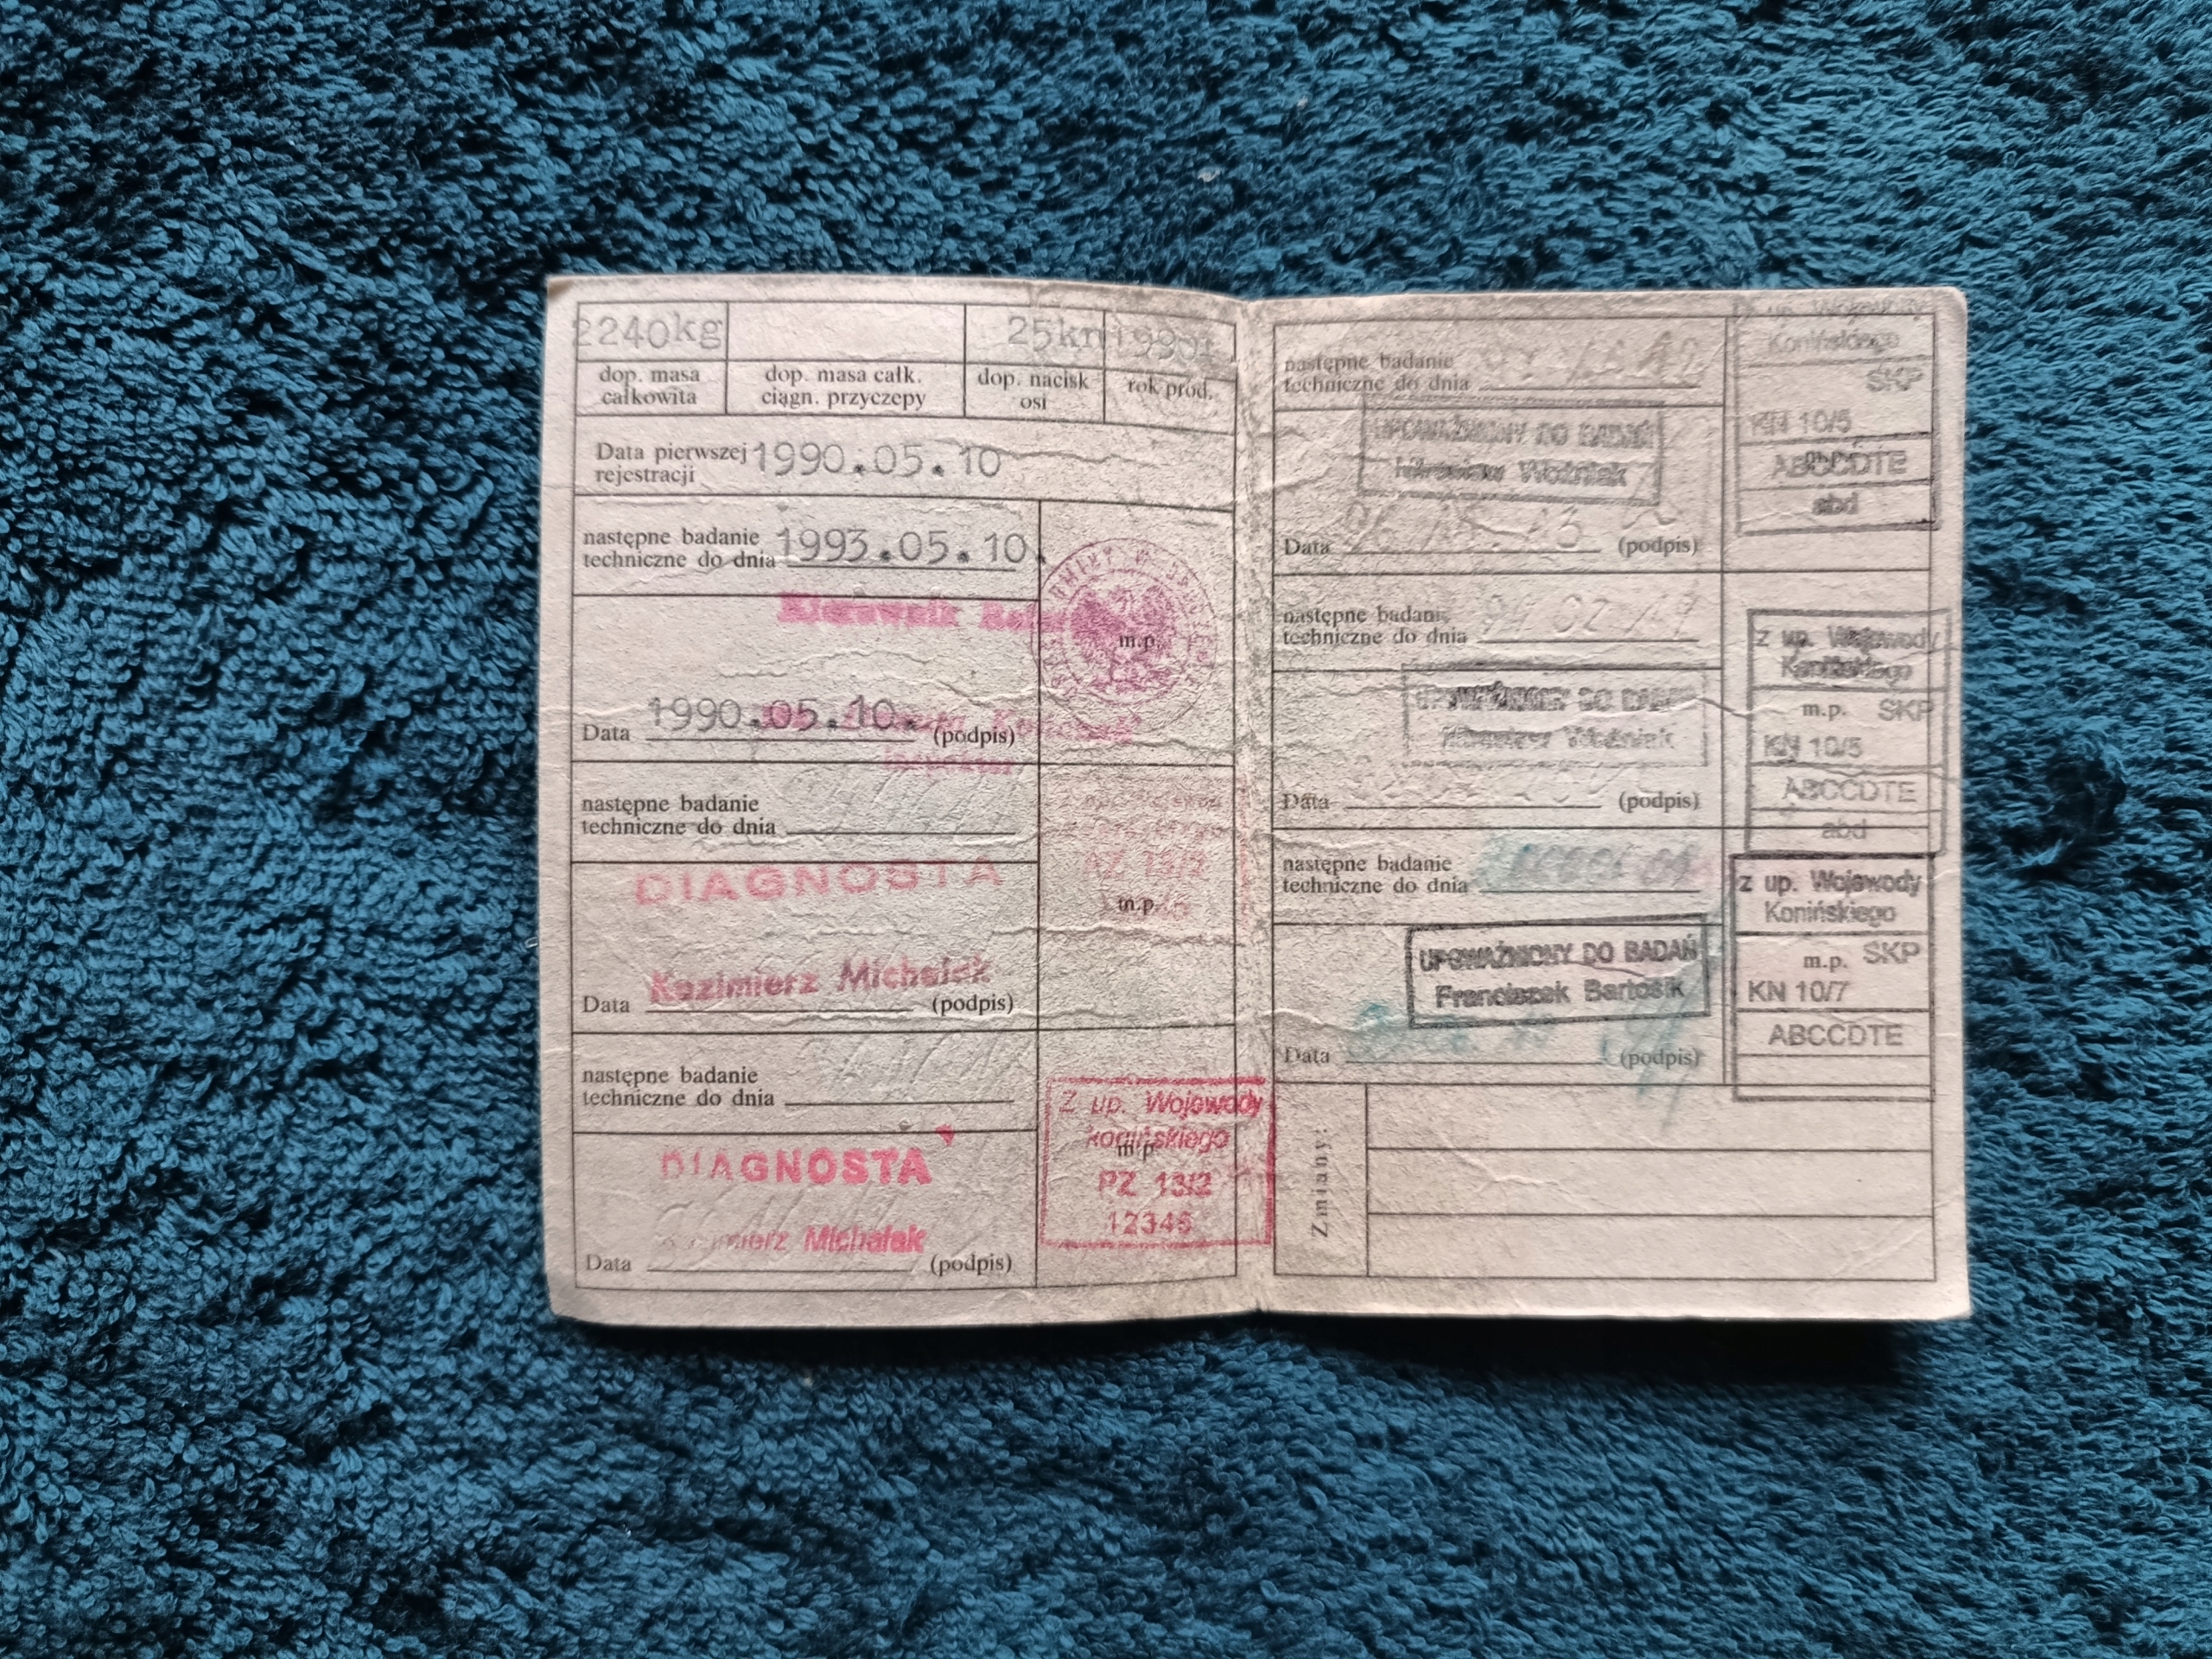 2240kg 25kn 1990r
dop. masa całkowita
dop. masa całk. ciągn. przyczepy
dop. nacisk osi
rok prod.
Data pierwszej rejestracji 1990.05.10
następne badanie
techniczne do dnia 1993.05.10.
Kierownik
m.p.
Data 1990.05.10. (podpis)
następne badanie
techniczne do dnia
DIAGNOSTA
PZ 13/2
m.p.
Kazimierz Michalak
Data (podpis)
następne badanie
techniczne do dnia
DIAGNOSTA
Z up. Wojewody
konińskiego
m.p.
PZ 13/2
12346
Kazimierz Michalak
Data (podpis)
następne badanie
techniczne do dnia
up. Wojewody
Konińskiego
SKP
KN 10/5
ABCCDTE
abd
UPOWAŻNIONY DO BADAŃ
Mirosław Woźniak
Data (podpis)
następne badanie
techniczne do dnia
z up. Wojewody
Konińskiego
m.p. SKP
KN 10/5
ABCCDTE
abd
UPOWAŻNIONY DO BADAŃ
Mirosław Woźniak
Data (podpis)
następne badanie
techniczne do dnia
z up. Wojewody
Konińskiego
m.p. SKP
KN 10/7
ABCCDTE
UPOWAŻNIONY DO BADAŃ
Franciszek Bartosik
Data (podpis)
Zmiany: